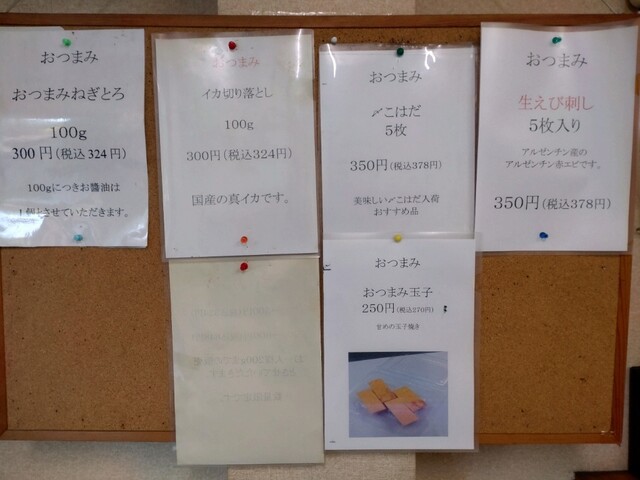 おつまみ
おつまみねぎとろ
100g
300円(税込324円)
100gにつきお醬油は
1個とさせていただきます。
おつまみ
イカ切り落とし
100g
300円(税込324円)
国産の真イカです。
おつまみ
〆こはだ
5枚
350円(税込378円)
美味しい〆こはだ入荷
おすすめ品
おつまみ
生えび刺し
5枚入り
アルゼンチン産の
アルゼンチン赤エビです。
350円(税込378円)
おつまみ
おつまみ玉子
250円(税込270円)
甘めの玉子焼き